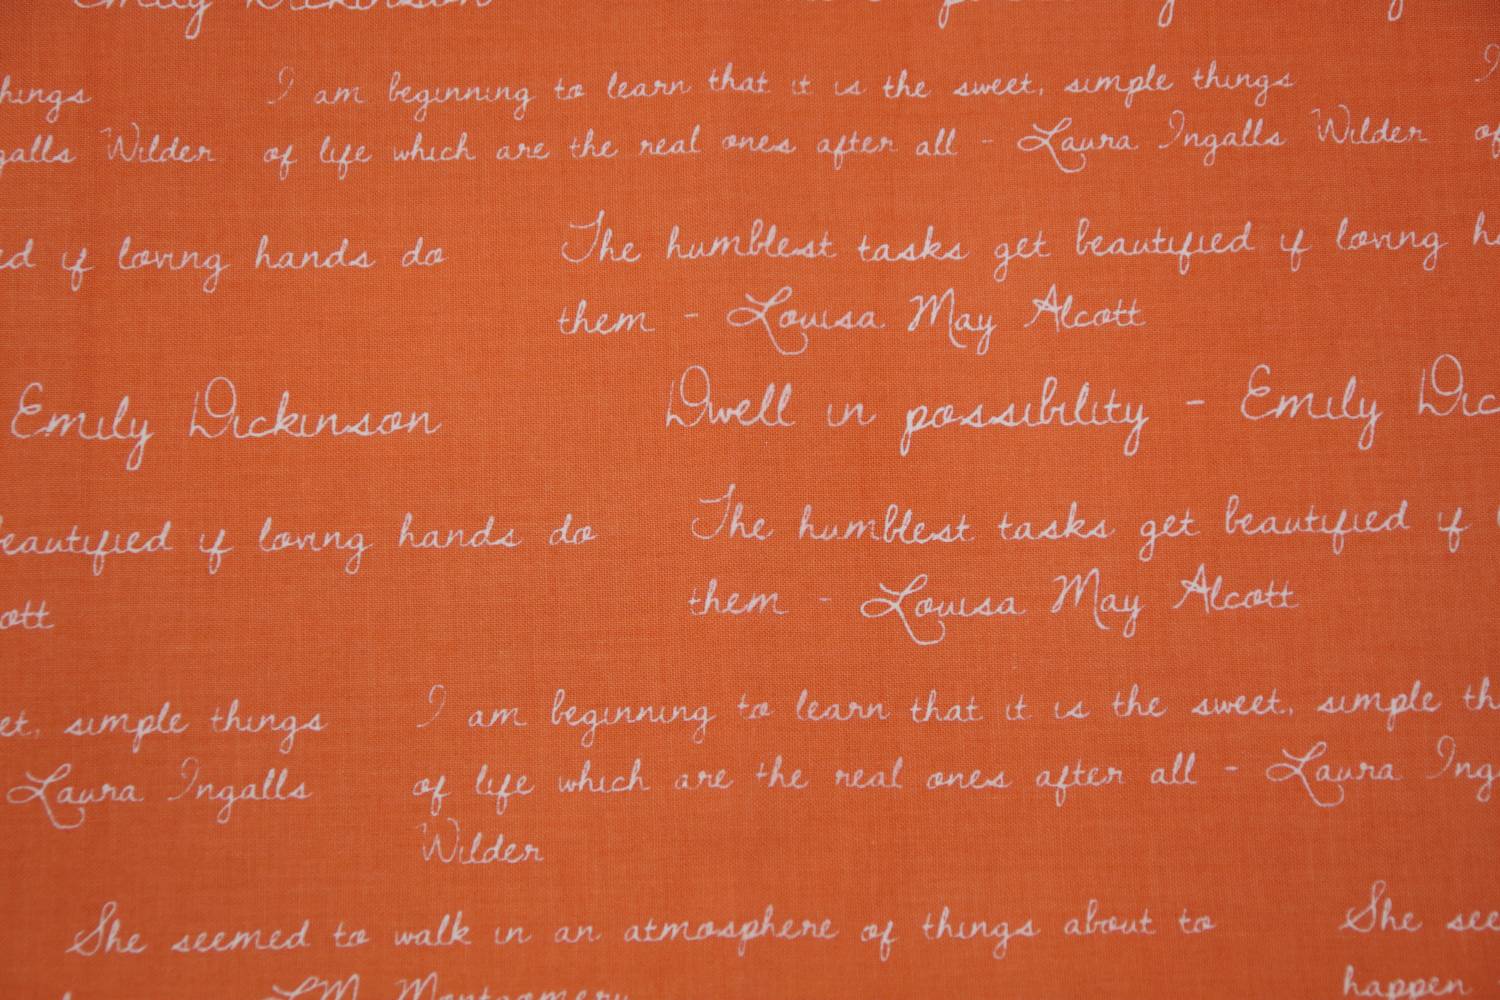 Emily Dickinson
things I am beginning to learn that it is the sweet, simple things I
Ingalls Wilder of life which are the real ones after all - Laura Ingalls Wilder of
if loving hands do The humblest tasks get beautified if loving
them - Louisa May Alcott
Emily Dickinson Dwell in possibility - Emily Dic
beautified if loving hands do The humblest tasks get beautified if
ott them - Louisa May Alcott
et, simple things I am beginning to learn that it is the sweet, simple th
Laura Ingalls of life which are the real ones after all - Laura Ing
Wilder
She seemed to walk in an atmosphere of things about to She see
LM Montgomery happen